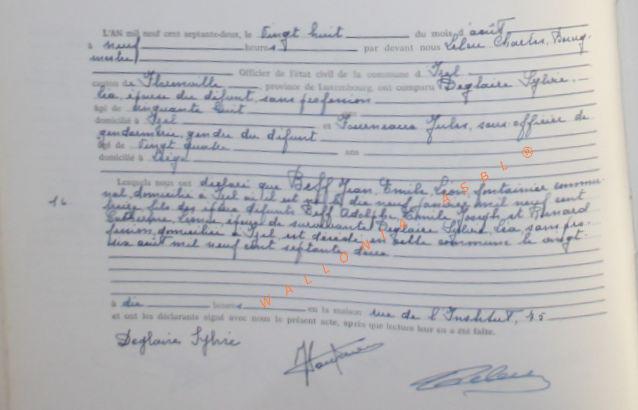 L'AN mil neuf cent septante-deux, le vingt huit du mois d'août
à neuf heures par devant nous Leleu Charles, Bourg-
mestre
Officier de l'état civil de la commune d Izel
canton de Florenville, province de Luxembourg, ont comparu Deglaire Sylvie,
Léa, épouse du défunt, sans profession
âgé de cinquante huit
domicilié à Izel et Jules, sous-officier de
gendarmerie, gendre du défunt
âgé de vingt quatre ans
domicilié à Liège
Lesquels nous ont déclaré que Beff Jean, Emile, Léon, fontainier commu-
nal, domicilié à Izel où il est né le dix neuf janvier mil neuf cent
treize fils des époux défunts Beff Adolphe, Emile, Joseph, et
Catherine, époux de survivante Deglaire Sylvie, Léa sans pro-
fession, domiciliée à Izel est décédé en cette commune le vingt
six août mil neuf cent septante deux
16
à dix heures en la maison rue de l'Institut, 45
et ont les déclarants signé avec nous le présent acte, après que lecture leur en a été faite.
Deglaire Sylvie
WALLONIA ASBL ®